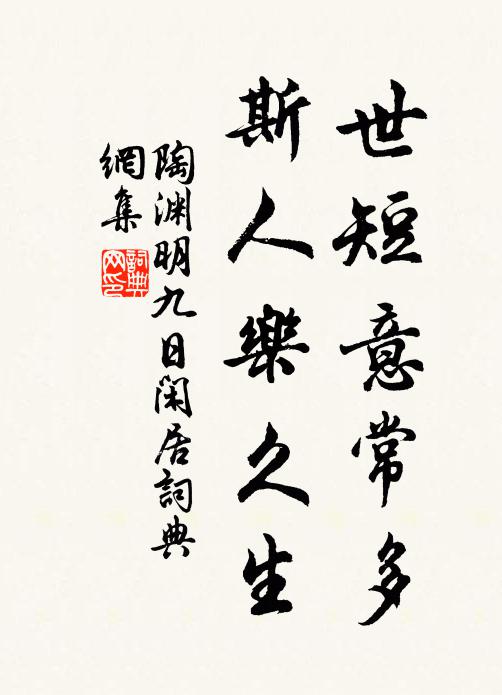 世短意常多
斯人樂久生
陶渊明九日闲居詞典
網集
詞典
网印